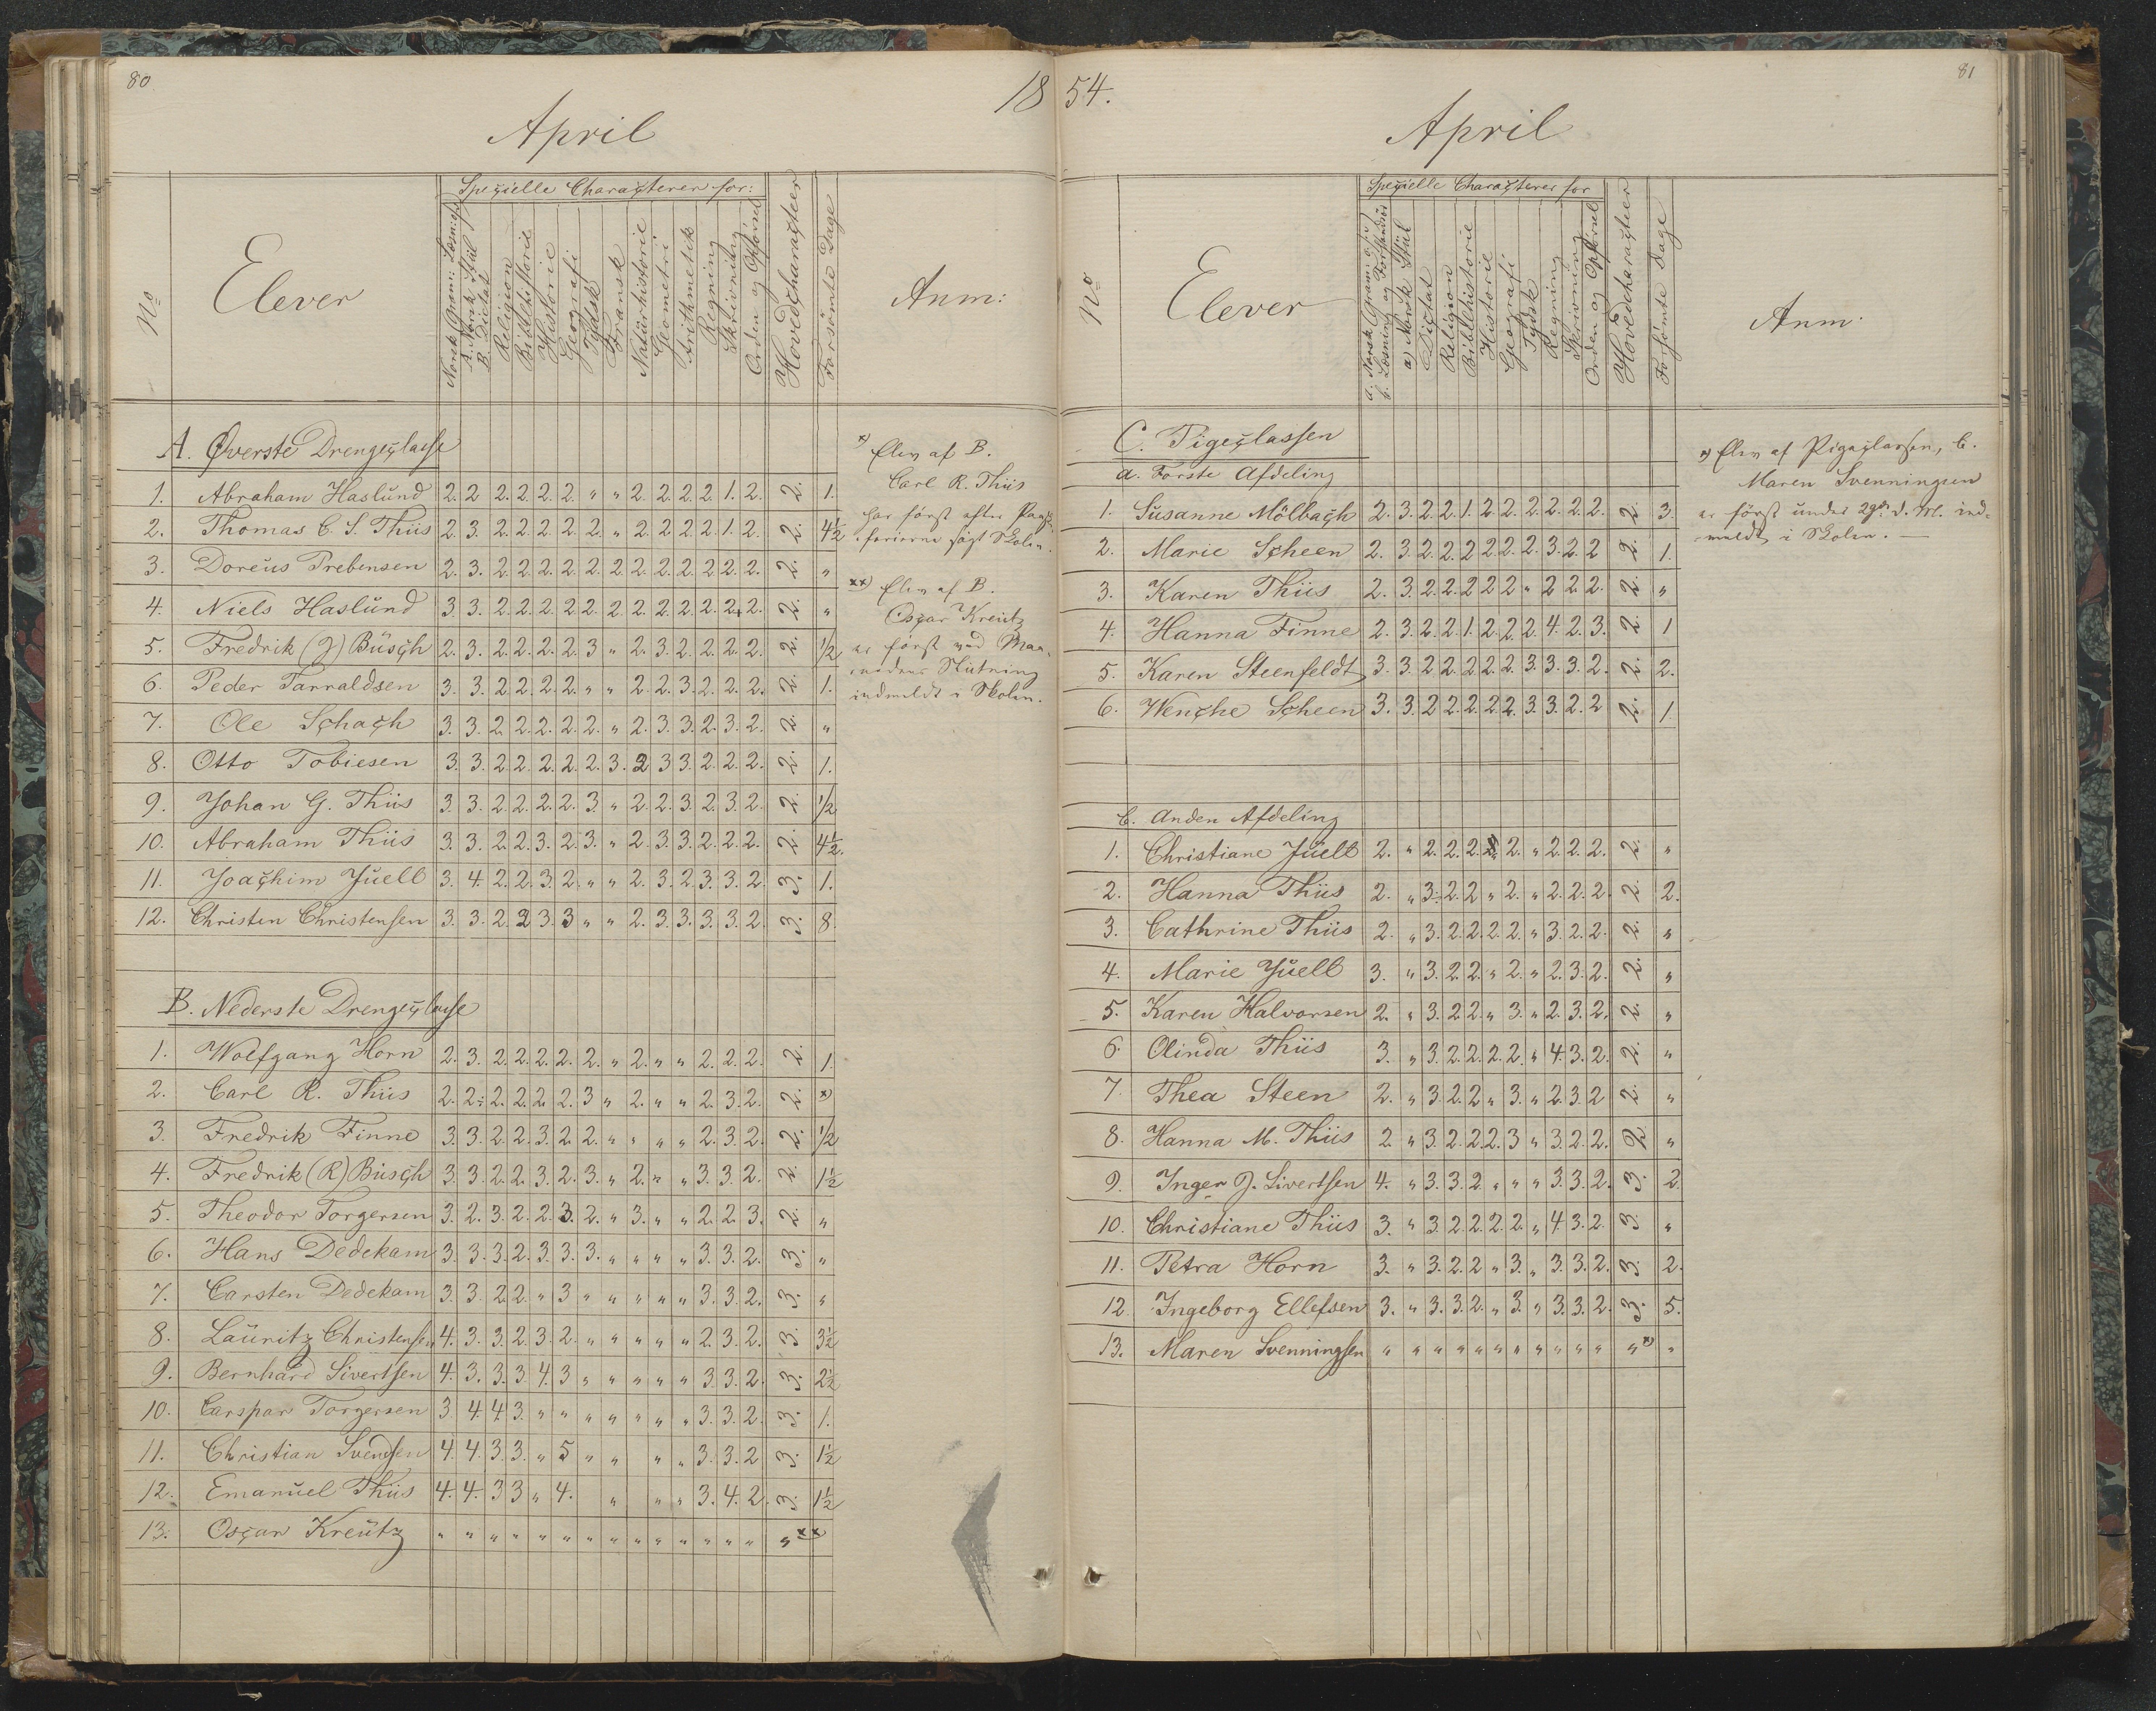 80
18
April
Specielle Characterer for:
No
Elever
Norsk Gram: Læsning
A. Norsk Stiil
B. Dictat
Religion
Bibelhistorie
Historie
Geografi
Tydsk
Fransk
Naturhistorie
Geometri
Arithmetik
Regning
Skrivning
Orden og Opførsel
Hovedcharacteer
Forsömte Dage
Anm:
A. Øverste Drengeclasse
1. Abraham Haslund 2. 2 2. 2. 2. 2. " " 2. 2. 2. 2. 1. 2. 2. 1.
2. Thomas C. S. Thiis 2. 3. 2. 2. 2. 2. 2. " 2. 2. 2. 2. 1. 2. 2. 4½
3. Doreus Prebensen 2. 3. 2. 2. 2. 2. 2. 2. 2. 2. 2. 2. 2. 2. 2. "
4. Niels Haslund 3. 3. 2. 2. 2. 2. 2. 2. 2. 2. 2. 2. 2. 2. 2. "
5. Fredrik (J) Busch 2. 3. 2. 2. 2. 2. 3 " 2. 3. 2. 2. 2. 2. 2. ½
6. Peder Tarraldsen 3. 3. 2. 2. 2. 2. " " 2. 2. 3. 2. 2. 2. 2. 1.
7. Ole Schach 3. 3. 2. 2. 2. 2. 2. " 2. 3. 3. 2. 3. 2. 2. "
8. Otto Tobiesen 3. 3. 2. 2. 2. 2. 2. 3. 2 3 3. 2. 2. 2. 2. 1.
9. Johan G. Thiis 3. 3. 2. 2. 2. 2. 3. " 2. 2. 3. 2. 3. 2. 2. ½
10. Abraham Thiis 3. 3. 2. 2. 3. 2. 3. " 2. 3. 3. 2. 2. 2. 2. 4½.
11. Joachim Juell 3. 4. 2. 2. 3. 2. " " 2. 3. 2. 3. 3. 2. 3. 1.
12. Christen Christensen 3. 3. 2. 2 3. 3 " " 2. 3. 3. 3. 3. 2. 3. 8.
B. Nederste Drengeclasse
1. Wolfgang Horn 2. 3. 2. 2. 2. 2. 2. " 2. " " 2. 2. 2. 2. 1.
2. Carl R. Thiis 2. 2. 2. 2. 2. 2. 3 " 2. " " 2. 3. 2. 2. x)
3. Fredrik Finne 3. 3. 2. 2. 3. 2. 2. " " " " 2. 3. 2. 2. ½
4. Fredrik (R) Busch 3. 3. 2. 2. 3. 2. 3. " 2. " " 3. 3. 2. 2. 1½
5. Theodor Torgersen 3. 2. 3. 2. 2. 3. 2. " 3. " " 2. 2. 3. 2. "
6. Hans Dedekam 3. 3. 3. 2. 3. 3. 3. " " " " 3. 3. 2. 3. "
7. Carsten Dedekam 3. 3. 2. 2. " 3 " " " " " 3. 3. 2. 3. "
8. Lauritz Christensen 4. 3. 3. 2. 3. 2. " " " " " 2. 3. 2. 3. 3½
9. Bernhard Sivertsen 4. 3. 3. 3. 4. 3 " " " " " 3. 3. 2. 3. 2½
10. Carspar Torgersen 3 4. 4. 3. " " " " " " " 3. 3. 2. 3. 1.
11. Christian Svendsen 4. 4. 3. 3. " 5 " " " " 3. 3. 2 3. 1½
12. Emanuel Thiis 4. 4. 3 3 " 4. " " " 3. 4. 2. 3. 1½
13. Oscar Kreutz " " " " " " " " " " " " " " " xx)
x) Elev af B.
Carl R. Thiis
har först efter Paaske-
ferierne sögt Skolen.
xx) Elev af B.
Oscar Kreutz
er först ved Maa-
nedens Slutning
indmeldt i Skolen.
81
54.
April
Specielle Characterer for
No
Elever
a. Norsk Gram: og
b. Læsning og Forstandsöv
a) Norsk Stiil
Dictat
Religion
Bibelhistorie
Historie
Geografi
Tydsk
Regning
Skrivning
Orden og Opförsel
Hovedcharacteer
Forsømte Dage
Anm.
C. Pigeclassen
a. Første Afdeling
1. Susanne Mölbach 2. 3. 2. 2. 1. 2. 2. 2. 2. 2. 2. 2. 3.
2. Marie Scheen 2. 3. 2. 2. 2. 2. 2. 2. 3. 2. 2 2. 1.
3. Karen Thiis 2. 3. 2. 2. 2. 2. 2. " 2. 2. 2. 2. "
4. Hanna Finne 2. 3. 2. 2. 1. 2. 2. 2. 4. 2. 3. 2. 1
5. Karen Steenfeldt 3. 3. 2. 2. 2. 2. 2. 3. 3. 3. 2. 2. 2.
6. Wenche Scheen 3. 3. 2. 2. 2. 2. 2. 3. 3. 2. 2 2. 1.
b. Anden Afdeling
1. Christiane Juell 2. " 2. 2. 2. " 2. " 2. 2. 2. 2. "
2. Hanna Thiis 2. " 3. 2. 2. " 2. " 2. 2. 2. 2. 2.
3. Cathrine Thiis 2. " 3. 2. 2. 2. 2. " 3. 2. 2. 2. "
4. Marie Juell 3. " 3. 2. 2. " 2. " 2. 3. 2. 2. "
5. Karen Halvorsen 2. " 3. 2. 2. " 3. " 2. 3. 2. 2. "
6. Olinda Thiis 3. " 3. 2. 2. 2. 2. " 4. 3. 2. 2. "
7. Thea Steen 2. " 3. 2. 2. " 3. " 2. 3. 2 2. "
8. Hanna M. Thiis 2. " 3. 2. 2. 2. 3 " 3. 2. 2. 2. "
9. Inger J. Sivertsen 4. " 3. 3. 2. " " " 3. 3. 2. 3. 2.
10. Christiane Thiis 3. " 3. 2. 2. 2. 2. " 4 3. 2. 3. "
11. Petra Horn 3. " 3. 2. 2. " 3. " 3. 3. 2. 3. 2.
12. Ingeborg Ellefsen 3. " 3. 3. 2. " 3. " 3. 3. 2. 3. 5.
13. Maren Svenningsen " " " " " " " " " " " " x) "
x) Elev af Pigeclassen, b.
Maren Svenningsen
er först under 29de d. M. ind-
meldt i Skolen. —